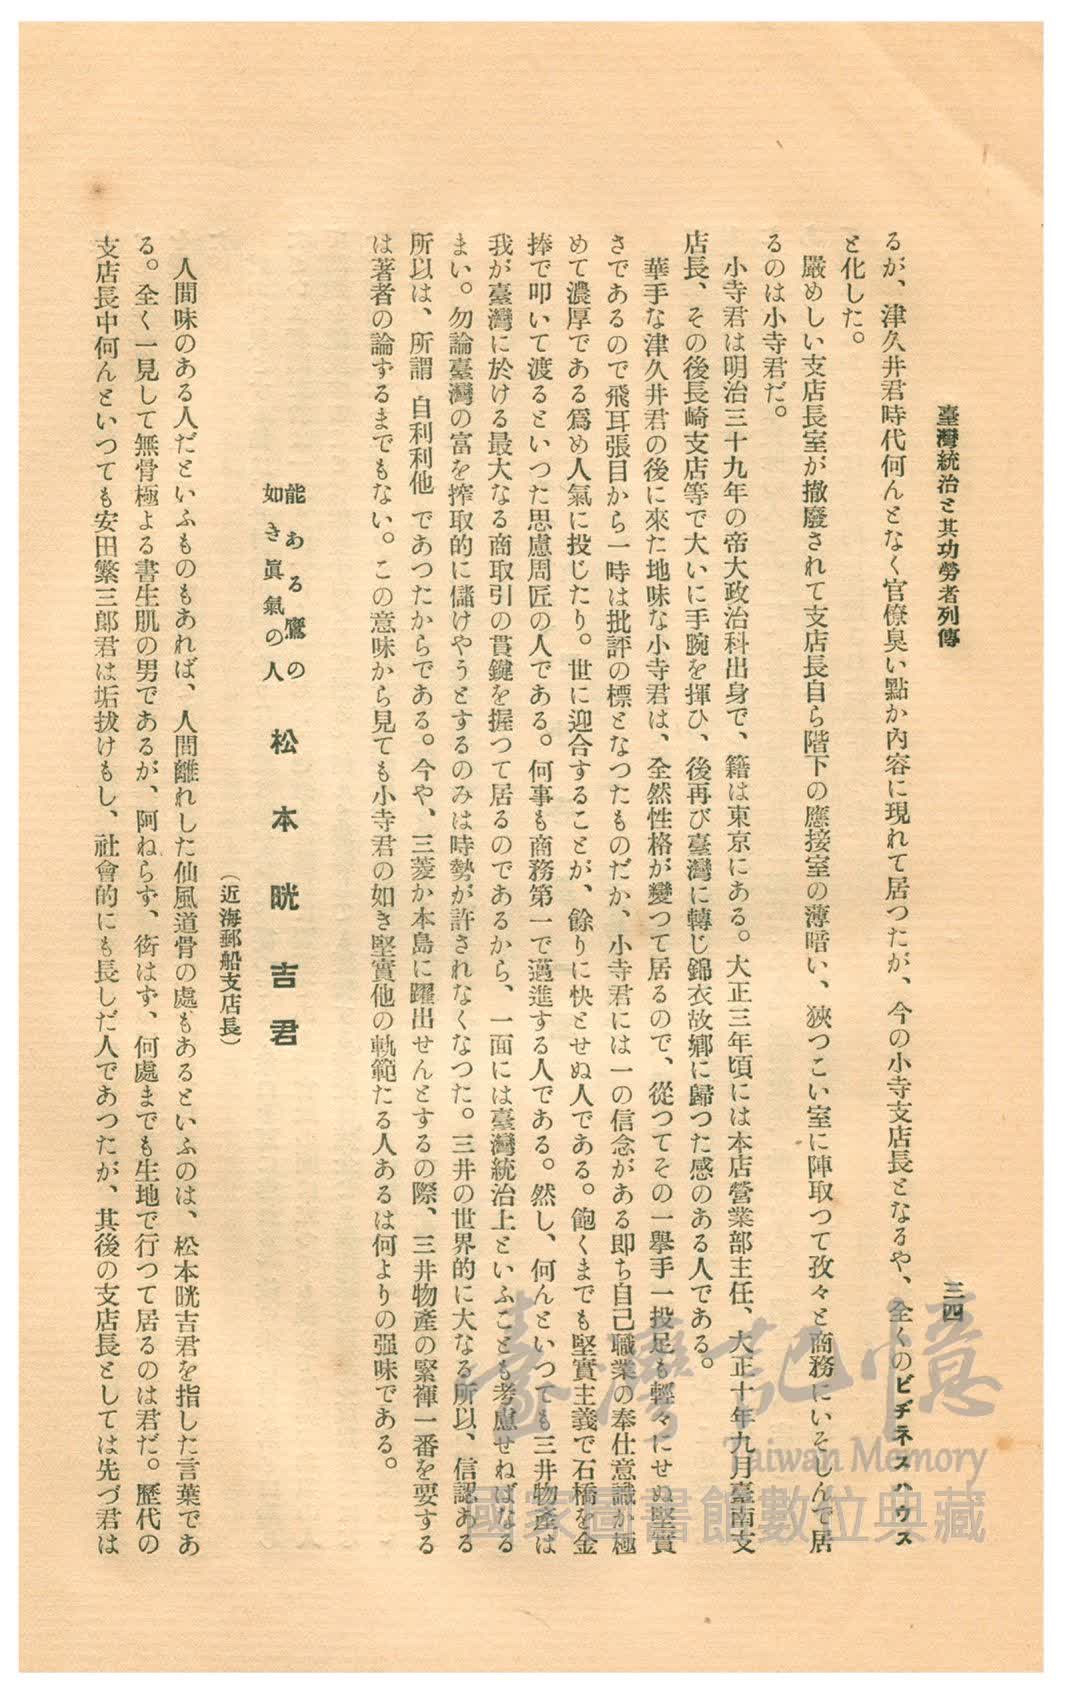 臺灣統治と其功勞者列傳
三四
るが、津久井君時代何んとなく官僚臭い點か內容に現れて居つたが、今の小寺支店長となるや、全くのビヂネスハウス
と化した。
嚴めしい支店長室が撤廢されて支店長自ら階下の應接室の薄暗い、狹つこい室に陣取つて孜々と商務にいそしんで居
るのは小寺君だ。
小寺君は明治三十九年の帝大政治科出身で、籍は東京にある。大正三年頃には本店營業部主任、大正十年九月臺南支
店長、その後長崎支店等で大いに手腕を揮ひ、後再び臺灣に轉じ錦衣故鄕に歸つた感のある人である。
華手な津久井君の後に來た地味な小寺君は、全然性格が變つて居るので、從つてその一擧手一投足も輕々にせぬ堅實
さであるので飛耳張目から一時は批評の標となつたものだか、小寺君には一の信念がある卽ち自己職業の奉仕意識か極
めて濃厚である爲め人氣に投じたり。世に迎合することが、餘りに快とせぬ人である。飽くまでも堅實主義で石橋を金
捧で叩いて渡るといつた思慮周匠の人である。何事も商務第一で邁進する人である。然し、何んといつても三井物產は
我が臺灣に於ける最大なる商取引の貫鍵を握つて居るのであるから、一面には臺灣統治上といふことも考慮せねばなる
まい。勿論臺灣の富を搾取的に儲けやうとするのみは時勢が許されなくなつた。三井の世界的に大なる所以、信認ある
所以は、所謂 自利利他 であつたからである。今や、三菱か本島に躍出せんとするの際、三井物產の緊褌一番を要する
は著者の論ずるまでもない。この意味から見ても小寺君の如き堅實他の軌範たる人あるは何よりの强味である。
能ある鷹の
如き眞氣の人
松本晄吉君
(近海郵船支店長)
人間味のある人だといふものもあれば、人間離れした仙風道骨の處もあるといふのは、松本晄吉君を指した言葉であ
る。全く一見して無骨極よる書生肌の男であるが、阿ねらず、衒はず、何處までも生地で行つて居るのは君だ。歷代の
支店長中何んといつても安田繁三郎君は垢拔けもし、社會的にも長しだ人であつたが、其後の支店長としては先づ君は
臺灣記憶
Taiwan Memory
國家圖書館數位典藏